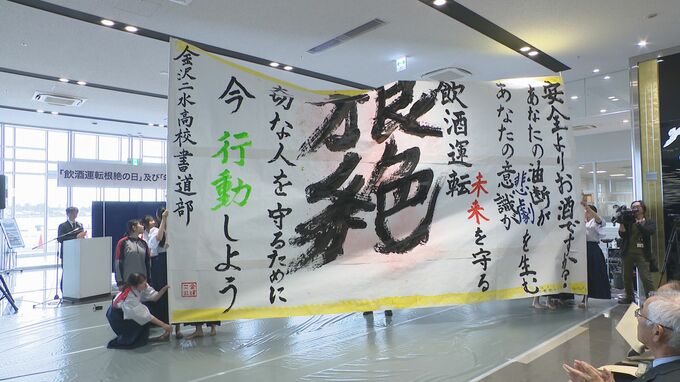 安全よりお酒ですか?
あなたの油断が
悲劇を生む
あなたの意識が
未来を守る
飲酒運転
根絶
切な人を守るために
今行動しよう
金沢二水高校書道部
「飲酒運転根絶の日」及び